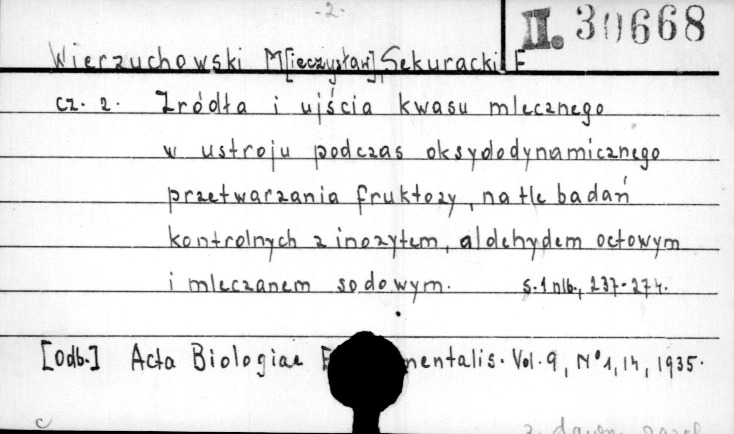 -2-
II. 30668
Wierzuchowski M[ieczysław], Sekuracki F
cz. 2. Źródła i ujścia kwasu mlecznego
w ustroju podczas oksydodynamicznego
przetwarzania fruktozy, na tle badań
kontrolnych z inozytem, aldehydem octowym
i mleczanem sodowym. s. 1 nlb., 237-274.
[Odb.] Acta Biologiae E mentalis. Vol. 9, N° 1, 14, 1935.
c